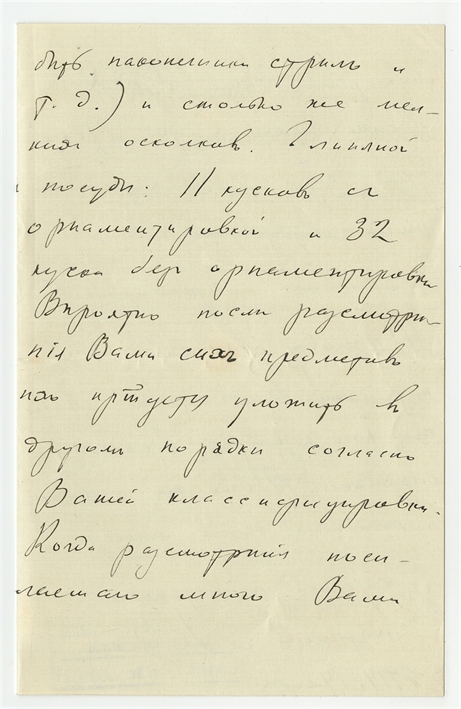 быть наконешники стрѣлъ и
т. д.) и столько же мел-
кихъ осколковъ. Глиняной
посуды: 11 кусковъ съ
орнаментировкой и 32
куска безъ орнаментировки
Вѣроятно послѣ разсмотрѣ-
нія Вами сихъ предметовъ
ихъ придется уложить въ
другомъ порядкѣ согласно
Вашей классифицировки.
Когда разсмотрѣнія посы-
лаемаго мною Вами